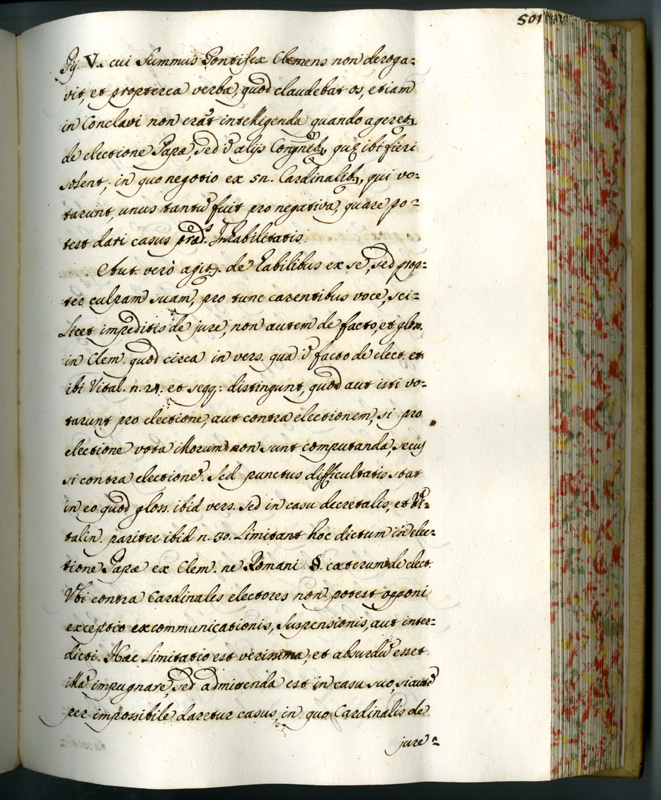 501
Pij V. cui Summus Pontifex Clemens non deroga-
vit, et propterea verba, quod claudebat os, etiam
in Conclavi non erat intelligenda quando ageretr
de electione Papæ, sed de alijs Congnib, quæ ibi fieri
solent, in quo negotio ex 5n. Cardinalib, qui vo-
tarunt, unus tantu fuit pro negativa, quare po-
test dari casus præd. Inhabilitatis.
Aut vero agitr. de habilibus ex se, sed prop-
ter culpam suam, pro tunc carentibus voce, sci-
licet impeditis de jure, non autem de facto, et glos.
in Clem. quod circa in vers. qua de facto de elect. et
ibi Vital. n. 24. et seqq: distingunt, quod aut isti vo-
tarunt pro electione, aut contra electionem, si pro
electione vota illorum non sunt computanda, secus
si contra electione. Sed punctus difficultatis stat
in eo, quod glos. ibid vers. sed in casu decretalis, et Vi-
talin. pariter ibid n. 30. limitant hoc dictum in elec-
tione Papæ ex Clem. ne Romani §. cæterum de elect.
Ubi contra Cardinales electores non potest opponi
exceptio excommunicationis, suspensionis, aut inter-
dicti. Hæc limitatio est verissima, et absurdu esset
illa impugnare, sed admitenda est in casu suo, sicuti
per impossibile daretur casus, in quo Cardinalis de
jure-